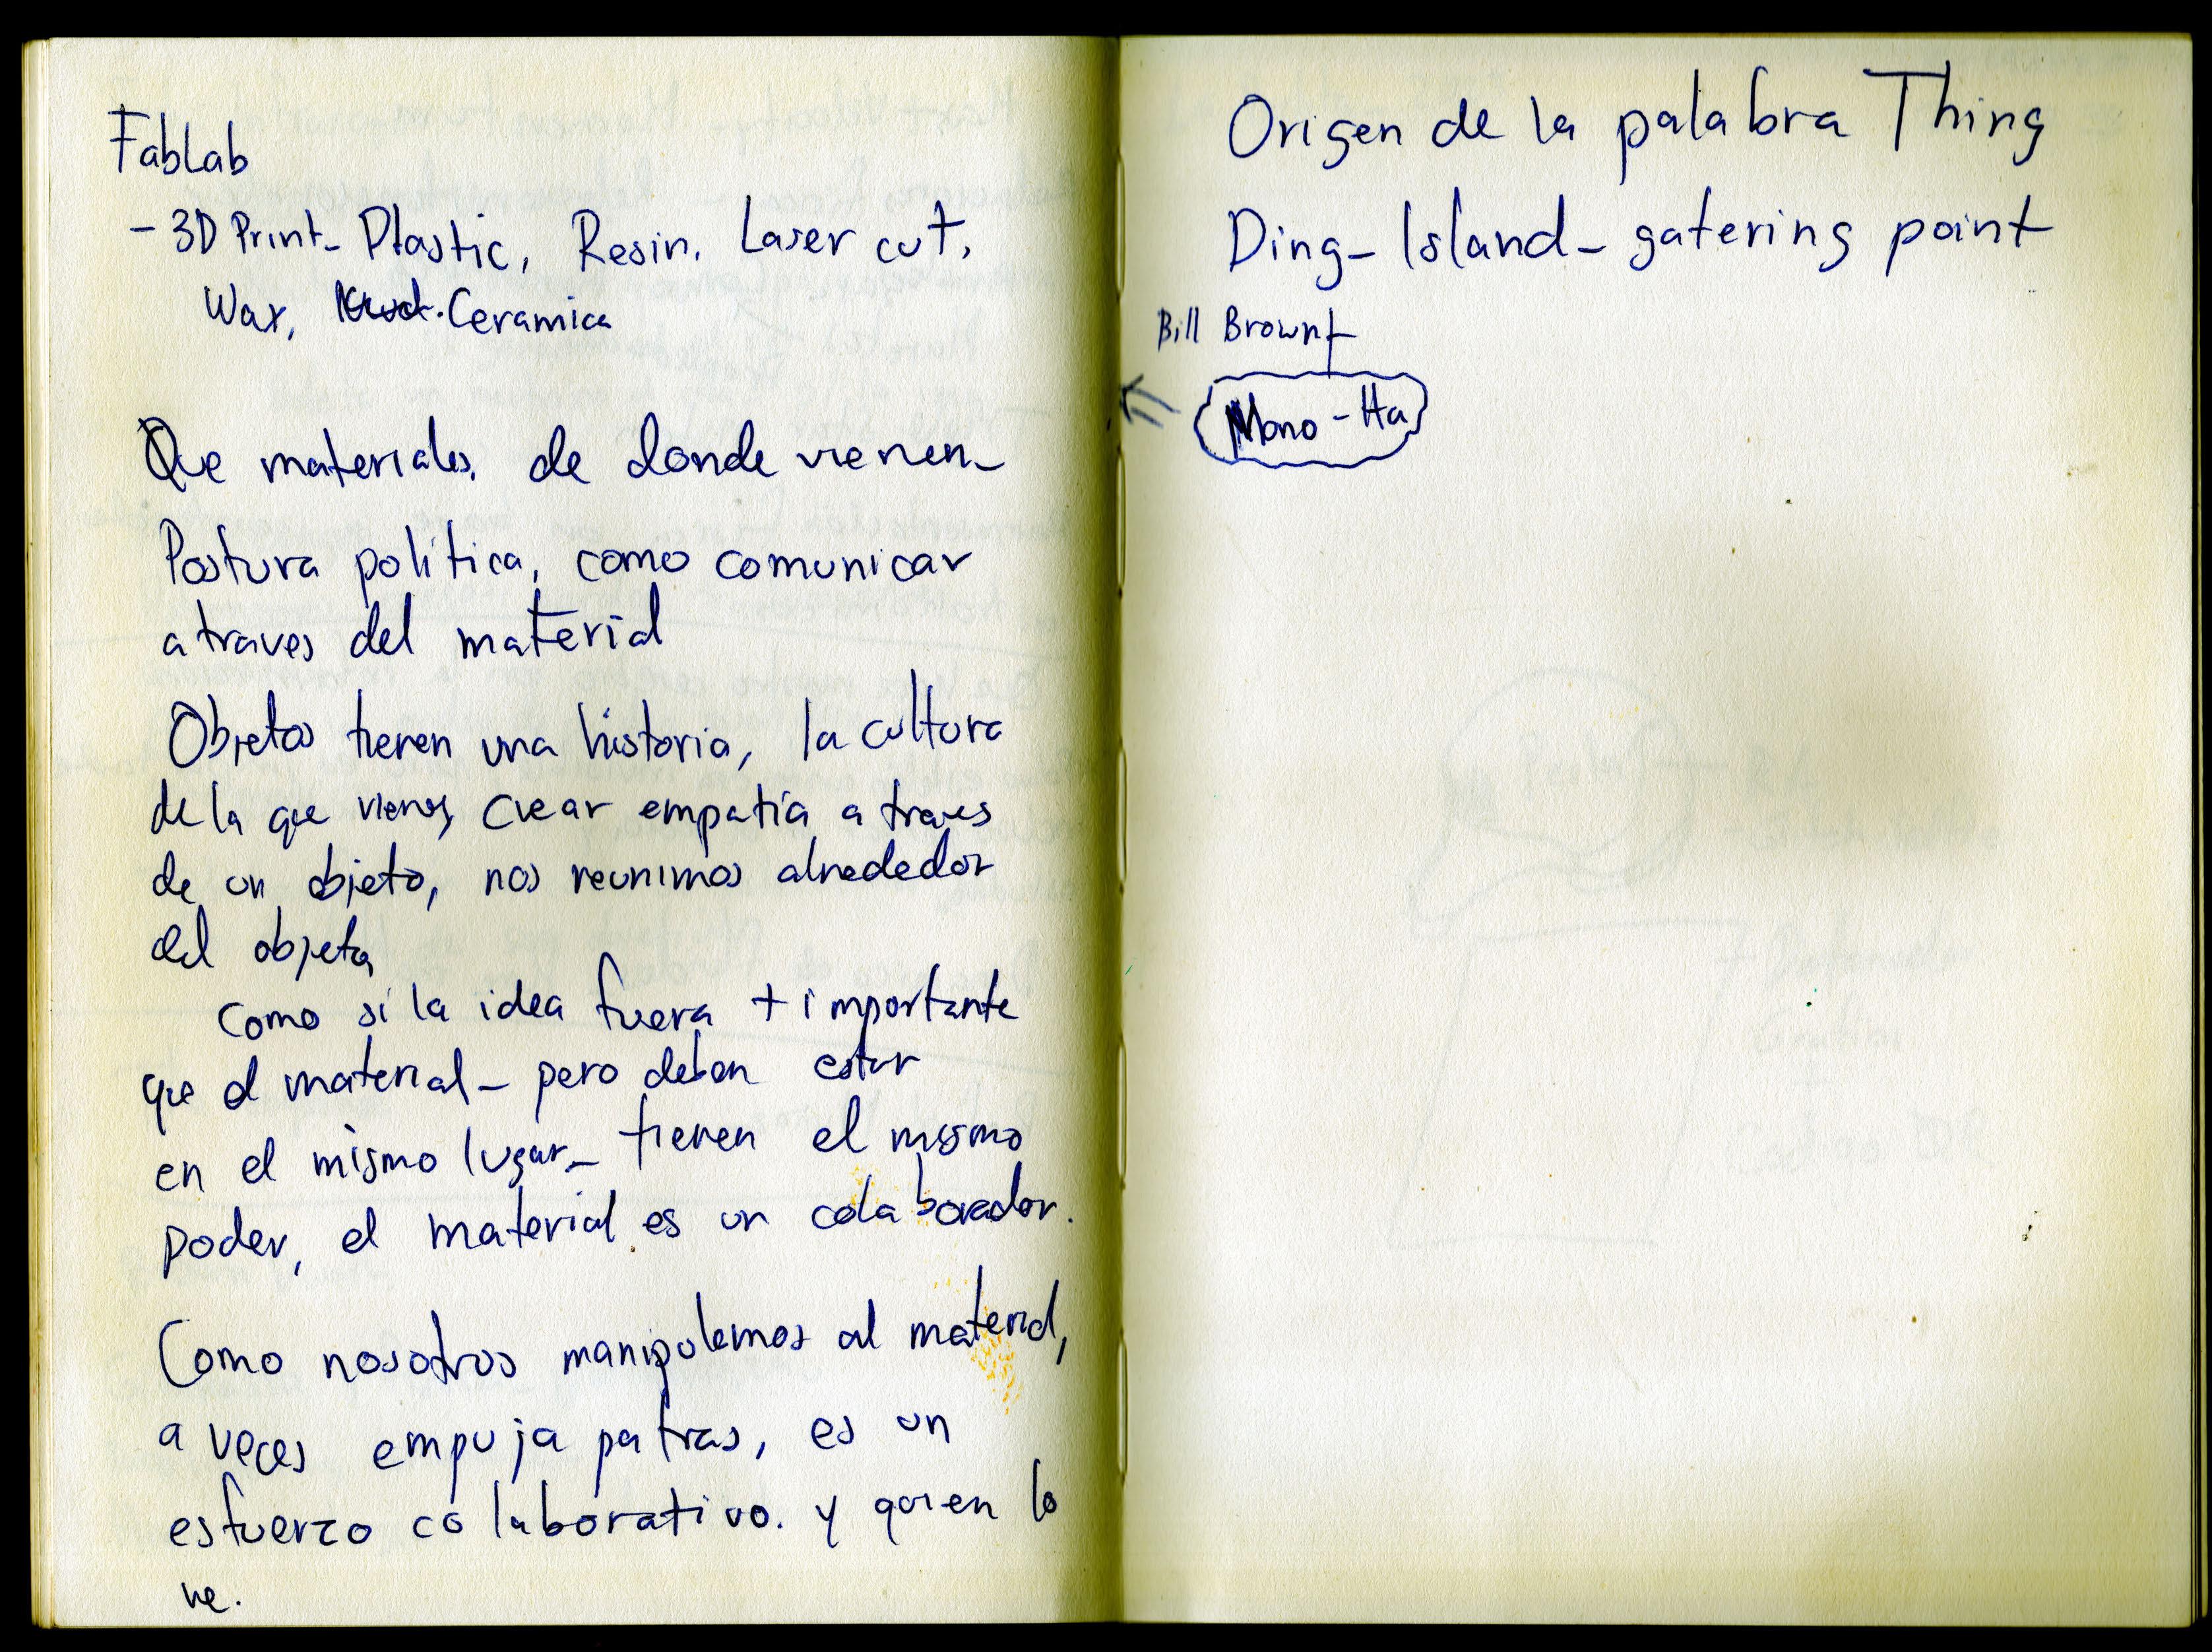 FabLab
- 3D Print- Plastic, Resin, Laser cut,
Wax, Ceramica
Que materiales, de donde vienen-
Postura política, como comunicar
a traves del material
Objetos tienen una historia, la cultura
de la que vienes, crear empatía a traves
de un objeto, nos reunimos alrededor
del objeto
como si la idea fuera + importante
que el material- pero deben estar
en el mismo lugar- tienen el mismo
poder, el material es un colaborador.
Como nosotros manipulemos al material,
a veces empuja patras, es un
esfuerzo colaborativo. y quien lo
ve.
Origen de la palabra Thing
Ding- Island- gatering point
Bill Brown
Mono-Ha